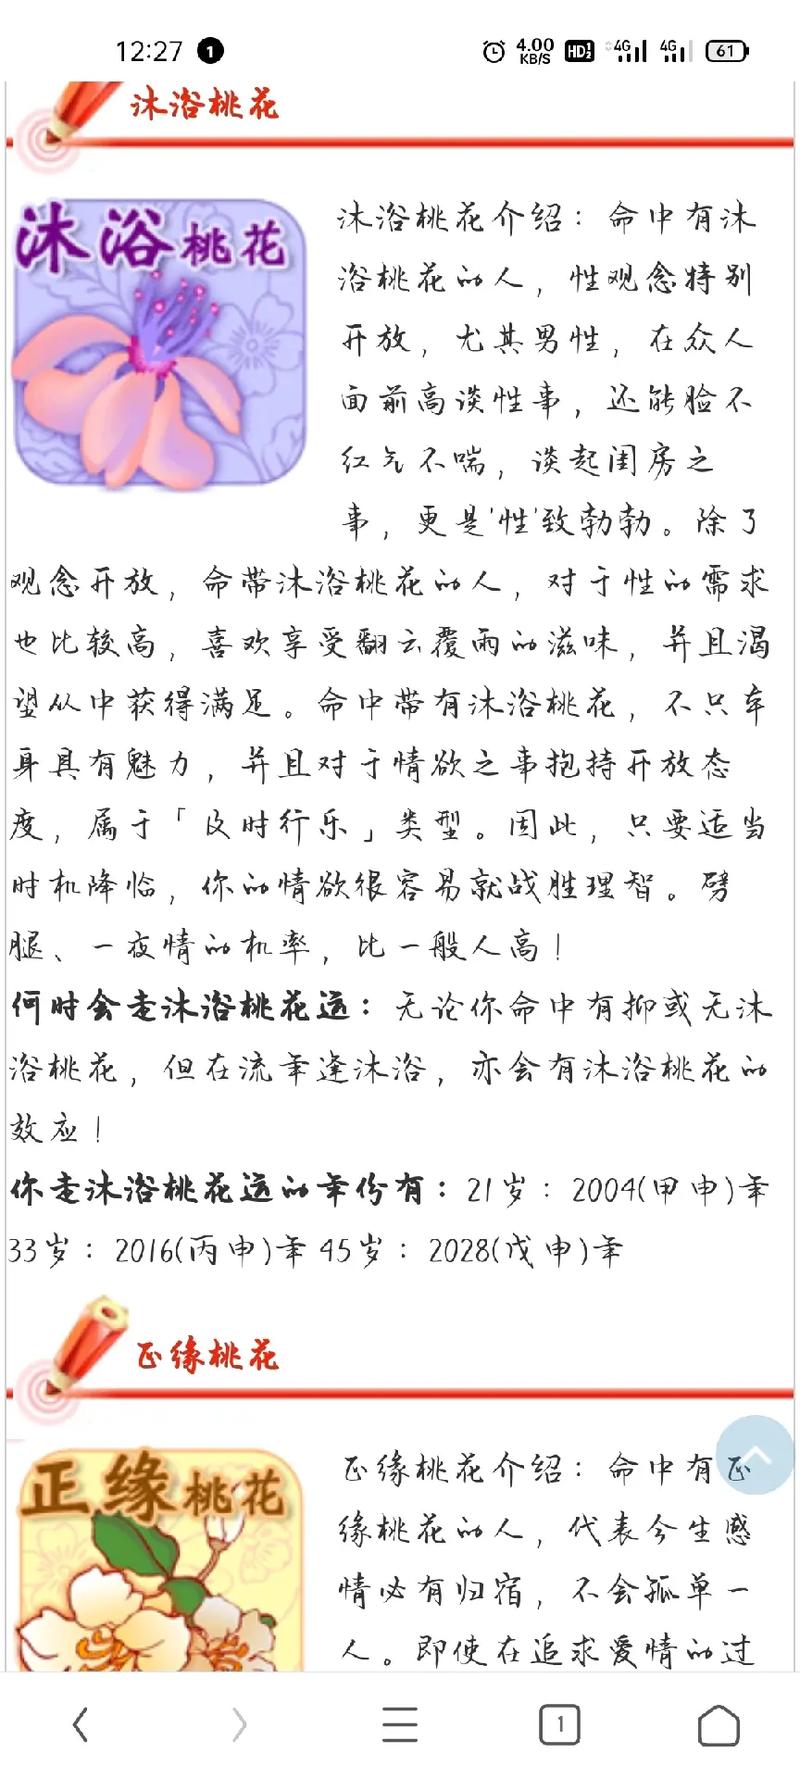 12:27 1 4.00 KB/S HD 1 2 4G 4G 61
沐浴桃花
沐浴桃花
沐浴桃花介绍：命中有沐
浴桃花的人，性观念特别
开放，尤其男性，在众人
面前高谈性事，还能脸不
红气不喘，谈起闺房之
事，更是'性'致勃勃。除了
观念开放，命带沐浴桃花的人，对于性的需求
也比较高，喜欢享受翻云覆雨的滋味，并且渴
望从中获得满足。命中带有沐浴桃花，不只本
身具有魅力，并且对于情欲之事抱持开放态
度，属于「及时行乐」类型。因此，只要适当
时机降临，你的情欲很容易就战胜理智。劈
腿、一夜情的机率，比一般人高！
何时会走沐浴桃花运：无论你命中有抑或无沐
浴桃花，但在流年逢沐浴，亦会有沐浴桃花的
效应！
你走沐浴桃花运的年份有：21岁：2004(甲申)年
33岁：2016(丙申)年 45岁：2028(戊申)年
正缘桃花
正缘桃花
正缘桃花介绍：命中有正
缘桃花的人，代表今生感
情必有归宿，不会孤单一
人。即使在追求爱情的过
1